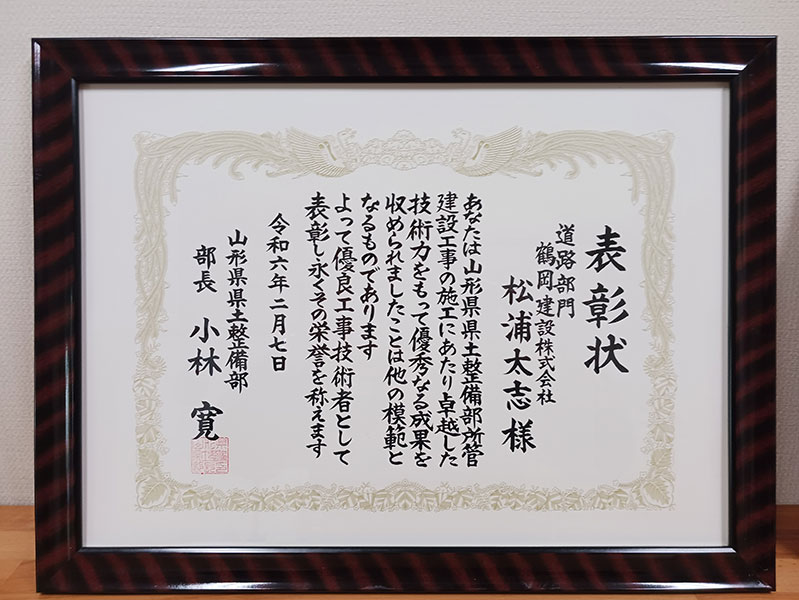 表彰状
道路部門
鶴岡建設株式会社
松浦太志様
あなたは山形県県土整備部所管
建設工事の施工にあたり卓越した
技術力をもって優秀なる成果を
収められましたことは他の模範と
なるものであります
よって優良工事技術者として
表彰し永くその栄誉を称えます
令和六年二月七日
山形県県土整備部
部長 小林 寛